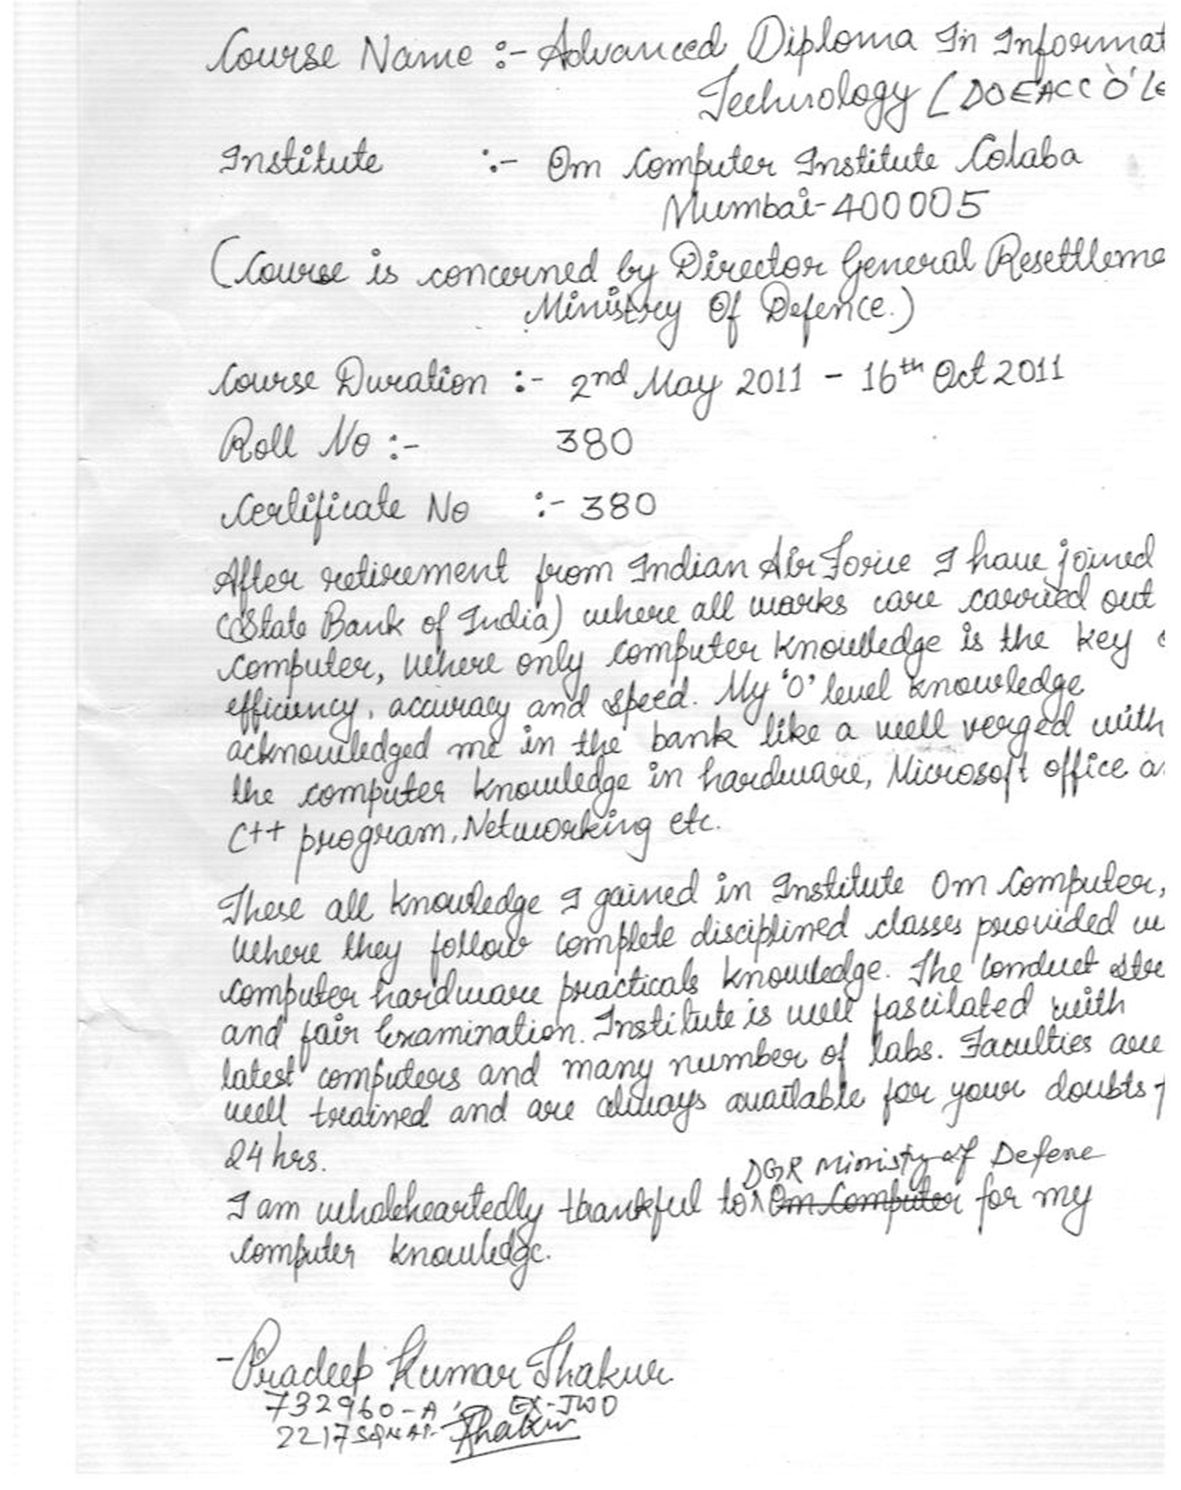 Course Name :- Advanced Diploma In Informat
Technology (DOEACC 'O' Le
Institute :- Om Computer Institute Colaba
Mumbai-400005
(Course is concerned by Director General Resettleme
Ministry Of Defence.)
Course Duration :- 2nd May 2011 - 16th Oct 2011
Roll No :- 380
Certificate No :- 380
After retirement from Indian Air Force I have joined
(State Bank of India) where all works are carried out
computer, where only computer knowledge is the key
efficiency, accuracy and speed. My 'O' level knowledge
acknowledged me in the bank like a well verged with
the computer knowledge in hardware, Microsoft office a
C++ program, Networking etc.
These all knowledge I gained in Institute Om Computer,
where they follow complete disciplined classes provided w
computer hardware practicals knowledge. The conduct stre
and fair Examination. Institute is well fascilated with
latest computers and many number of labs. Faculties are
well trained and are always available for your doubts
24 hrs.
DGR Ministy of Defene
I am wholeheartedly thankful to Om Computer for my
computer knowledge.
- Pradeep Kumar Thakur
732960-A EX-JWO
2217 SQN AF Thakur